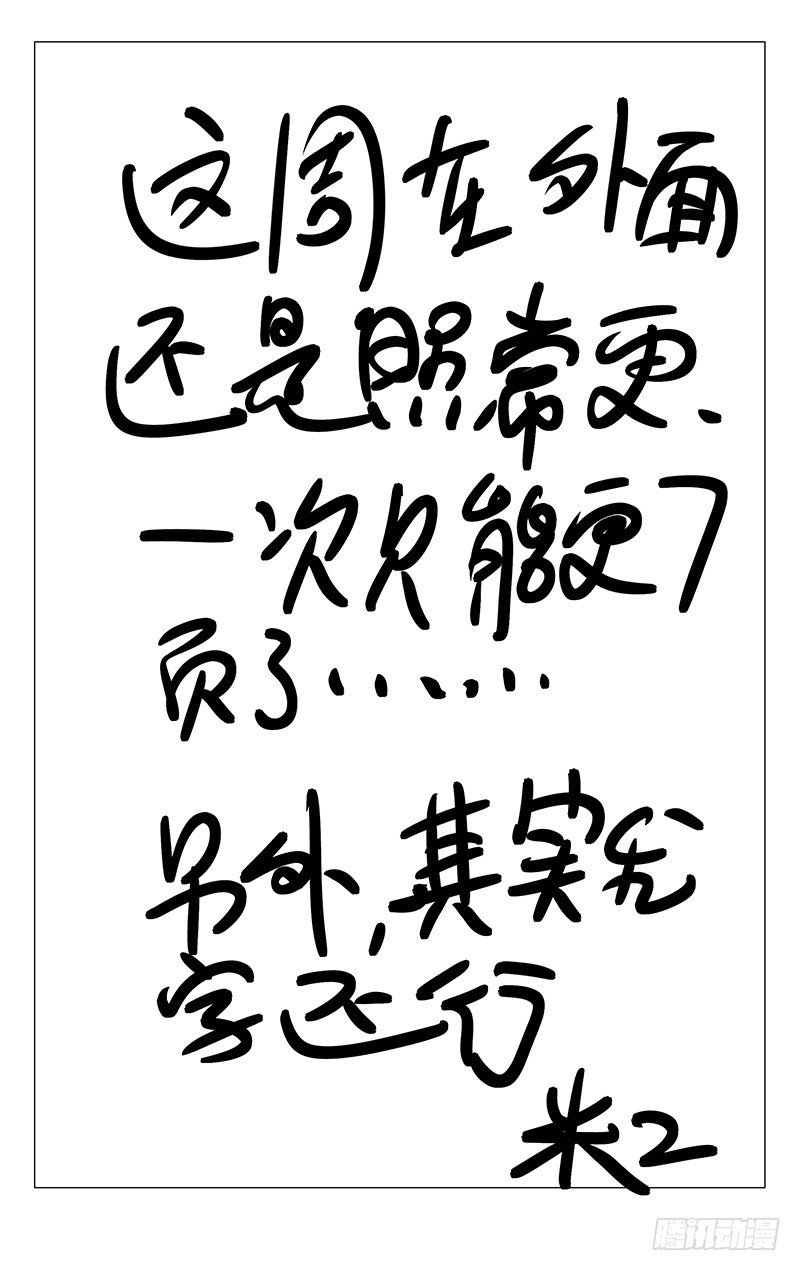 这周在外面
还是照常更、
一次只能更7
页了……
另外,其实我
字还行
米二
腾讯动漫